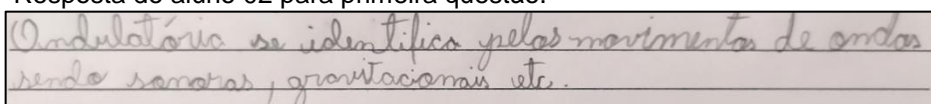 Resposta do aluno 02 para primeira questão:
Ondulatória se identifica pelos movimentos de ondas
sendo sonoras, gravitacionais etc.